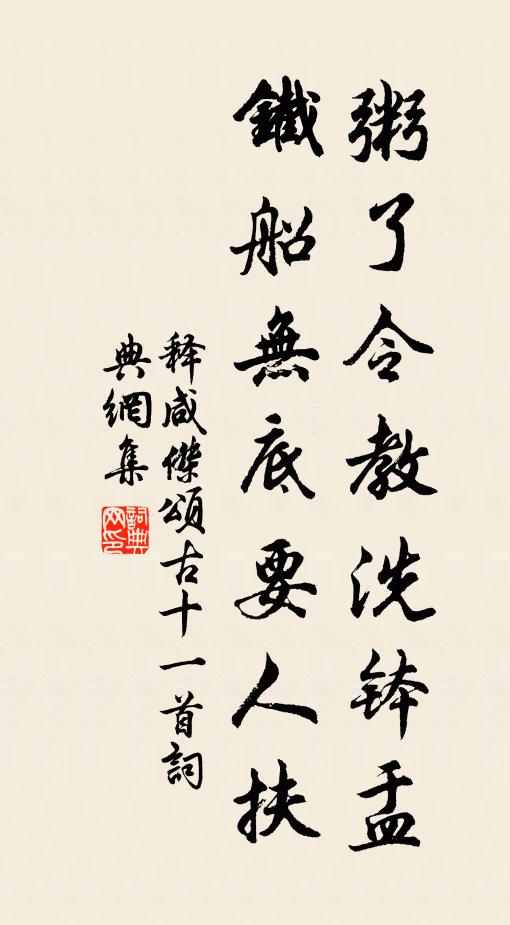 粥了令教洗鉢盂
鐵船無底要人扶
释咸傑頌古十一首詞
典網集
詞典
网印